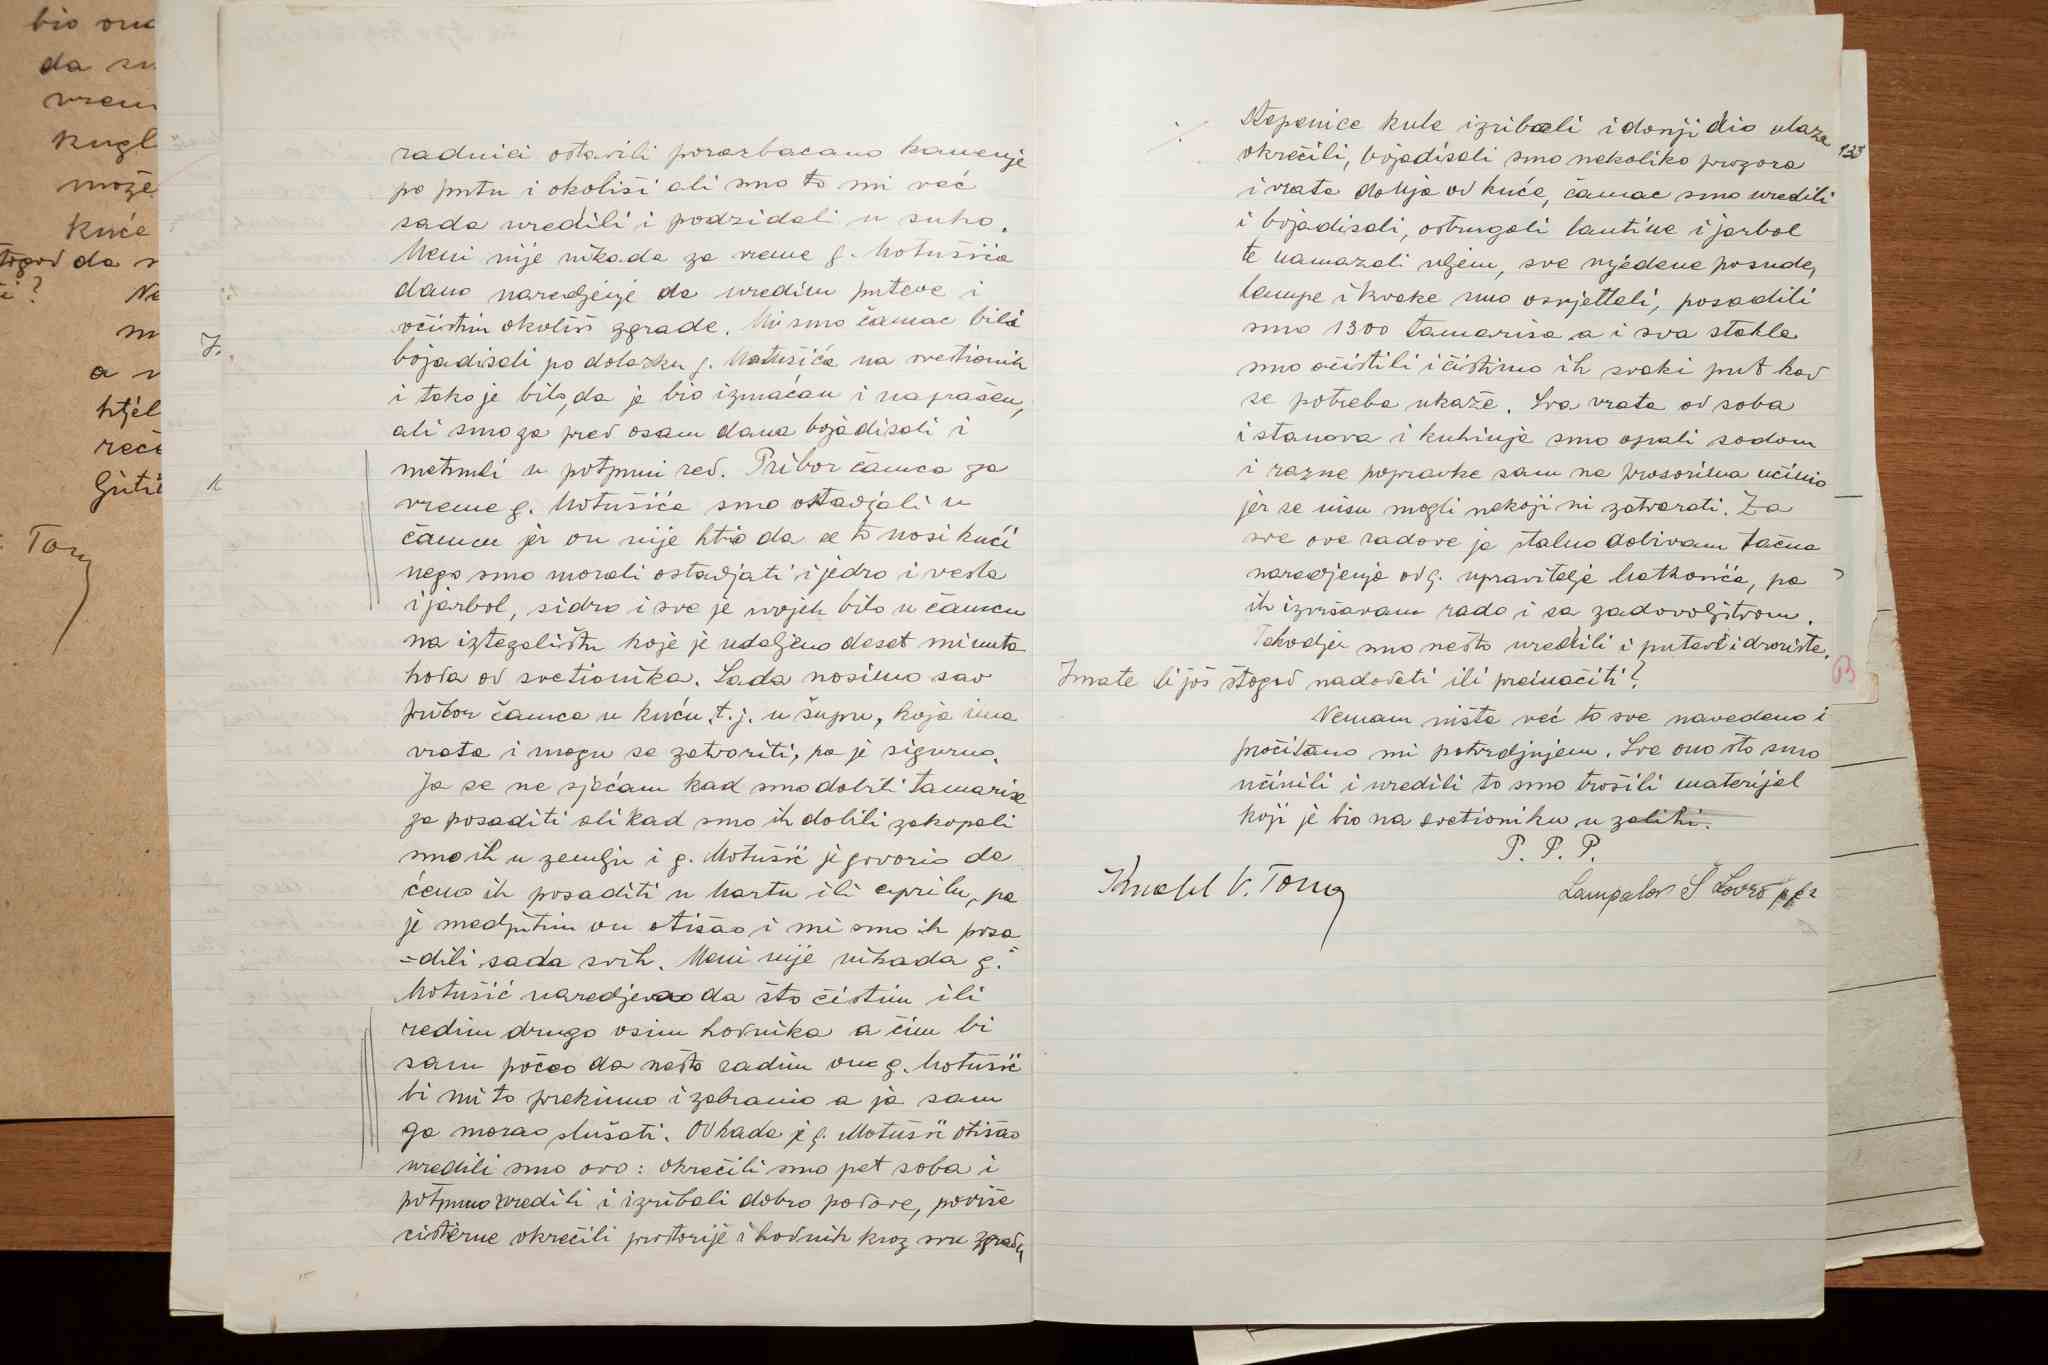 bio ona
da sm
vrem
kugl
može
kuće
štogod da
ti?
Ne
m
a
htjel
reče
Gutić
Tony
radnici ostavili porazbacano kamenje
po putu i okoliši ali smo to mi već
sada uredili i podzidali u suho.
Meni nije nikada za vreme g. Motušića
dano naredjenje da uredim puteve i
očistim okoliš zgrade. Mi smo čamac bili
bojadisali po dolazku g. Matušića na svetionik
i tako je bilo, da je bio izmaćan i naprašen,
ali smo ga pred osam dana bojadisali i
metnuli u potpuni red. Pribor čamca za
vreme g. Motušića smo ostavjali u
čamcu jer on nije htio da se to nosi kući
nego smo morali ostavjati i jedro i vesla
i jarbol, sidro i sve je uvijek bilo u čamcu
na iztegalištu koje je udaljeno deset minuta
hoda od svetionika. Sada nosimo sav
pribor čamca u kuću t. j. u šupu, koja ima
vrata i mogu se zatvoriti, pa je sigurno.
Ja se ne sjećam kad smo dobili tamarise
za posaditi ali kad smo ih dobili zakopali
smo ih u zemlju i g. Motušić je govorio da
ćemo ih posaditi u Martu ili aprilu, pa
je medjutim on otišao i mi smo ih posa
=dili sada svih. Meni nije nikada g.
Motušić naredjevao da što čistim ili
redim drugo osim hodnika a čim bi
sam počeo da nešto radim on g. Motušić
bi mi to prekinuo i zabranio a ja sam
ga morao slušati. Od kada je g. Motušić otišao
uredili smo ovo: okrečili smo pet soba i
potpuno uredili i izribali dobro podove, poviše
cisterne okrečili prostorije i hodnik kroz svu zgradu
Stepenice kule izribali i donji dio ulaza
133
okrečili, bojadisali smo nekoliko prozora
i vrata dolnja od kuće, čamac smo uredili
i bojadisali, ostrugali lantine i jarbol
te namazali uljem, sve mjedene posude,
lampe i kvake smo osvjetlali, posadili
smo 1300 tamarisa a i sva stakla
smo očistili i čistimo ih svaki put kad
se potreba ukaže. Sva vrata od soba
i stanova i kuhinja smo oprali sodom
i razne popravke sam na prozorima učinio
jer se nisu mogli nekoji ni zatvarati. Za
sve ove radove ja stalno dobivam tačna
naredjenja od g. upravitelja Matkovića, pa
ih izvršavam rado i sa zadovoljstvom.
Takodjer smo nešto uredili i puteve i dvorište.
Imate li još štogod nadodati ili preinačiti?
Nemam ništa već to sve navedeno i
pročitano mi potvrdjujem. Sve ono što smo
učinili i uredili to smo trošili materijal
koji je bio na svetioniku u zalihi.
P. P. P.
V. Tony
Lovro